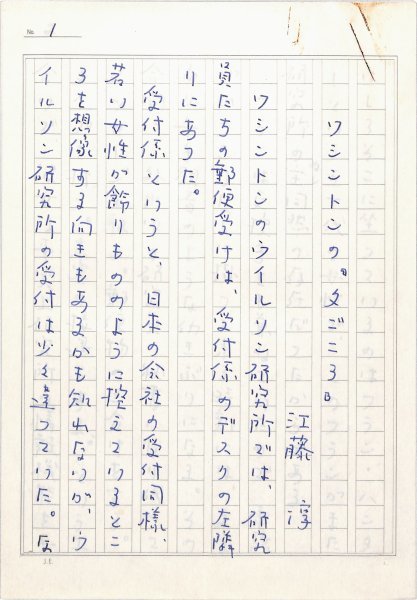 No. 1
ワシントンの〝文ごころ〟
江藤 淳
ワシントンのウイルソン研究所では、研究
員たちの郵便受けは、受付係のデスクの左隣
りにあった。
受付係というと、日本の会社の受付同様、
若い女性が飾りもののように控えているとこ
ろを想像する向きもあるかも知れないが、ウ
イルソン研究所の受付は少々違っていた。な
J.E.